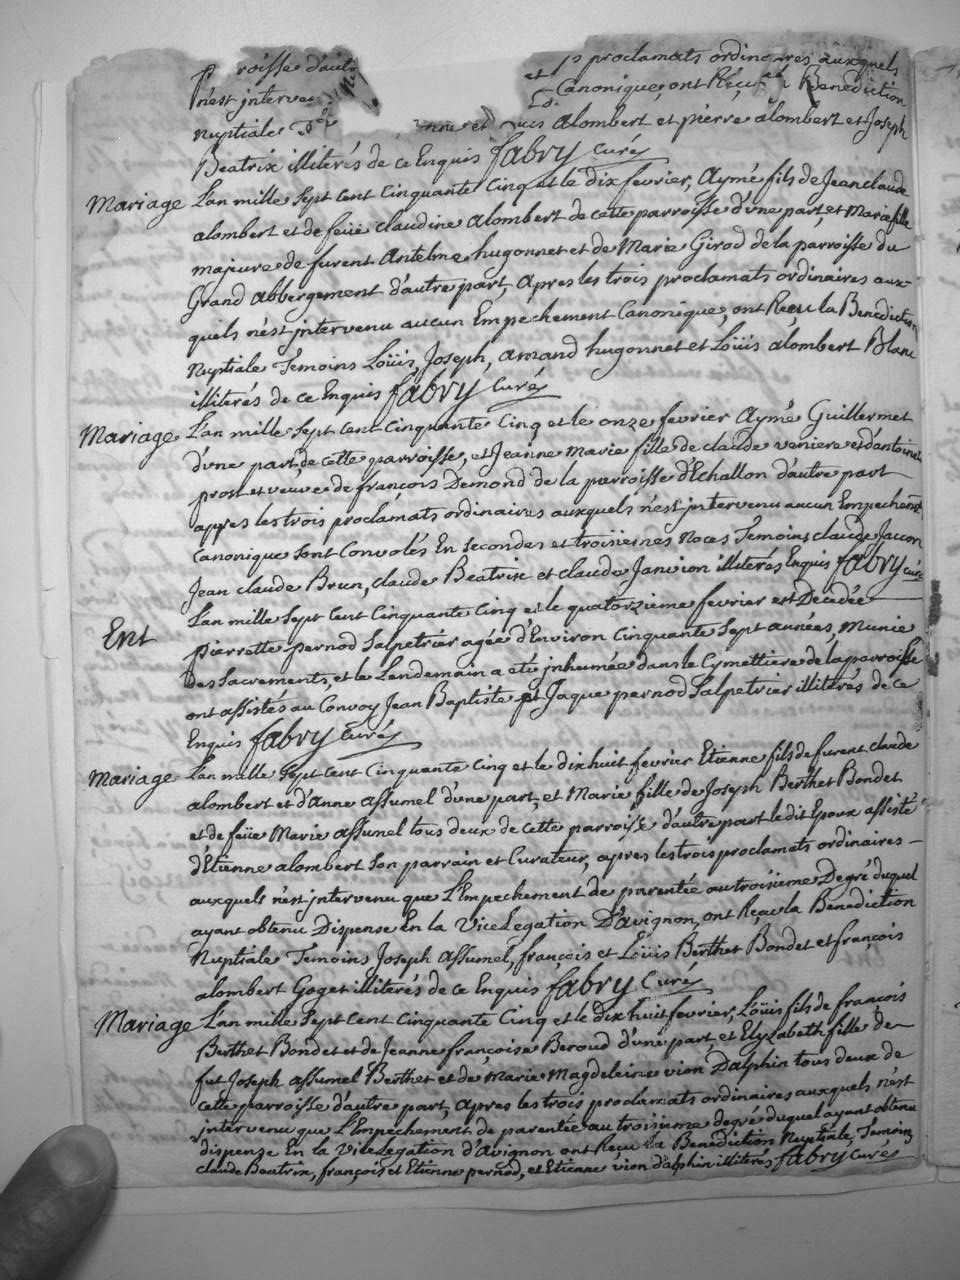 roisse d'autre proclamats ordinaires auxquels
n'est interve Canonique, ont Reçu la Benediction
Nuptiale et Louis alombert et pierre alombert et Joseph
Beatrix illiterés de ce Enquis fabry Curé
Mariage L'an mille Sept Cent Cinquante Cinq et le dix fevrier, Aymé fils de Jean claude
alombert et de feüe claudine alombert de cette parroisse d'vne part, et Marie fille
majeure de furent Antelme hugonnet et de Marie Girod de la parroisse du
Grand abbergement d'autre part, Apres les trois proclamats ordinaires aux-
quels n'est jntervenu aucun Empechement Canonique, ont Reçu la Benediction
Nuptiale Temoins Loüis, Joseph, amand hugonnet et Loüis alombert Blanc
illiterés de ce Enquis fabry Curé
Mariage L'an mille Sept Cent Cinquante Cinq et le onze fevrier Aymé Guillermet
d'vne part de cette parroisse, et Jeanne Marie fille de claude veniere et d'antoinette
prost et veuve de françois Demond de la parroisse d'Echallon d'autre part
appres les trois proclamats ordinaires auxquels n'est jntervenu aucun Empechemt
Canonique Sont Convolés En Secondes et troisiemes Noces Temoins claude Jacon
Jean claude Brun, claude Beatrix et claude Janvion illiterés Enquis fabry Curé
Ent L'an mille Sept Cent Cinquante Cinq et le quatorzieme fevrier est Decedée
pierrette pernod Salpetrier agée d'Environ Cinquante Sept années, Munie
des Sacrements, et le Lendemain a été jnhumée dans le Cymettiere de la parroisse
ont assistés au Convoy Jean Baptiste et Jaque pernod Salpetrier illiterés de ce
Enquis fabry Curé
Mariage L'an mille Sept Cent Cinquante Cinq et le dix huit fevrier Etienne fils de furent claude
alombert et d'Anne assumel d'vne part, et Marie fille de Joseph Berthet Bondet
et de feüe Marie assumel tous deux de cette parroisse d'autre part le dit Epoux assisté
d'Etienne alombert Son parrain et Curateur, apres les trois proclamats ordinaires –
auxquels n'est jntervenu que L'Empechement de parentée au troisieme Degré duquel
ayant obtenu Dispense En la Vice Legation D'avignon, ont Reçu la Benediction
Nuptiale Temoins Joseph assumel, françois et Loüis Berthet Bondet et françois
alombert Goget illiterés de ce Enquis fabry Curé
Mariage L'an mille Sept Cent Cinquante Cinq et le dix huit fevrier, Loüis fils de françois
Berthet Bondet et de Jeanne françoise Beroud d'vne part, et Elyzabeth fille de
fut Joseph assumel Berthet et de Marie Magdeleine vion Dalphin tous deux de
cette parroisse d'autre part, Apres les trois proclamats ordinaires auxquels n'est
jntervenu que L'Empechement de parentée au troisieme degré duquel ayant obtenu
dispense En la Vice Legation d'Avignon ont Reçu la Benediction Nuptiale, Temoins
claude Beatrix, françois et Etienne pernod, et Etienne vion d'alphin illiterés fabry Curé